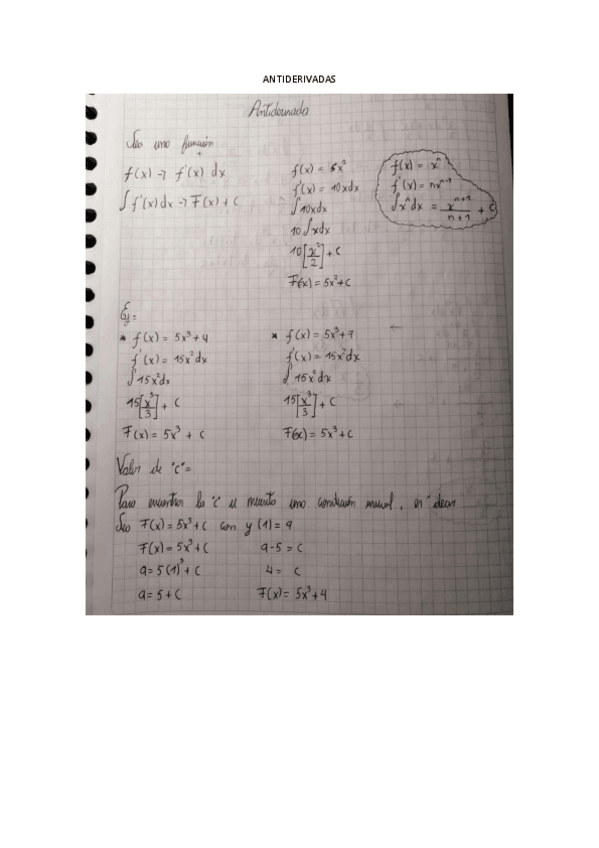 ANTIDERIVADAS
Antiderivada
Sea una función
f(x) → f'(x) dx
∫ f'(x) dx → F(x) + C
f(x) = 5x²
f'(x) = 10xdx
∫10xdx
10 ∫xdx
10[x²/2] + C
F(x) = 5x² + C
f(x) = xⁿ
f'(x) = nxⁿ⁻¹
∫xⁿdx = xⁿ⁺¹/n+1 + C
Ej=
* f(x) = 5x³ + 4
f'(x) = 15x² dx
∫15x²dx
15[x³/3] + C
F(x) = 5x³ + C
* f(x) = 5x³ + 7
f'(x) = 15x²dx
∫ 15x² dx
15[x³/3] + C
F(x) = 5x³ + C
Valor de "C"=
Para encontrar la "C" se necesita una condición inicial, es decir
Sea F(x) = 5x³ + C con y(1) = 9
F(x) = 5x³ + C
9 = 5(1)³ + C
9 = 5 + C
9 - 5 = C
4 = C
F(x) = 5x³ + 4